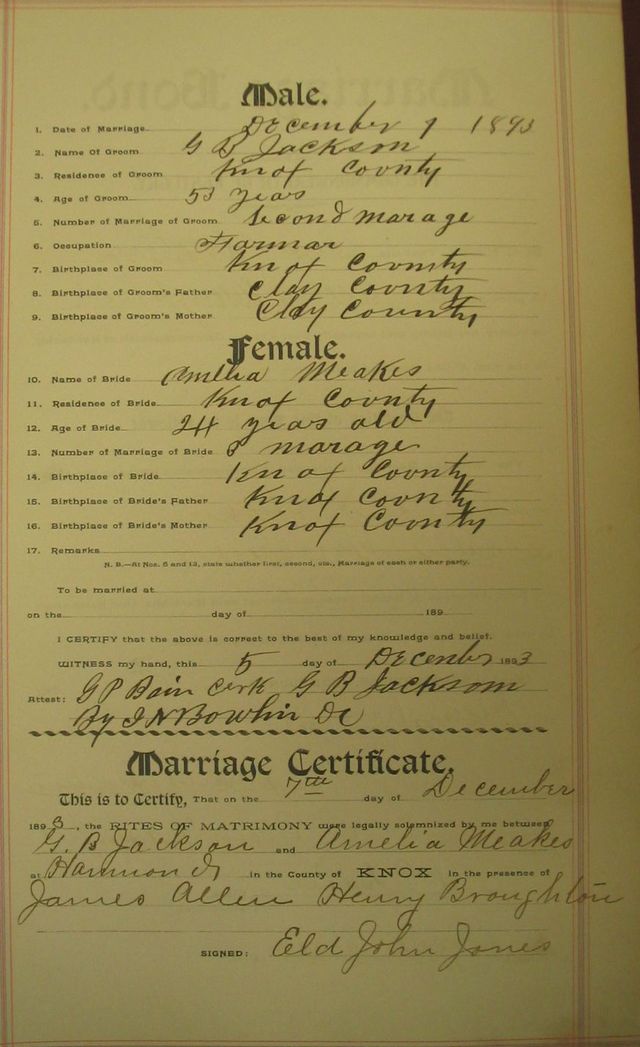 Male.
1. Date of Marriage December 7 1893
2. Name Of Groom G B Jackson
3. Residence of Groom Knox County
4. Age of Groom 53 years
5. Number of Marriage of Groom Second marage
6. Occupation Farmar
7. Birthplace of Groom Knox County
8. Birthplace of Groom's Father Clay County
9. Birthplace of Groom's Mother Clay County
Female.
10. Name of Bride Amelia Meakes
11. Residence of Bride Knox County
12. Age of Bride 24 years old
13. Number of Marriage of Bride marage
14. Birthplace of Bride Knox County
15. Birthplace of Bride's Father Knox County
16. Birthplace of Bride's Mother Knox County
17. Remarks
N. B.—At Nos. 5 and 13, state whether first, second, etc., Marriage of each or either party.
To be married at
on the day of 189
I CERTIFY that the above is correct to the best of my knowledge and belief.
WITNESS my hand, this 5 day of December 1893
Attest: G P Bain Cerk G B Jackson
By J N Bowlin DC
Marriage Certificate.
This is to Certify, That on the 7th day of December
1893, the RITES OF MATRIMONY were legally solemnized by me between
G. B Jackson and Amelia Meakes
at in the County of KNOX in the presence of
James Allen Henry Broughton
SIGNED: Eld John Jones